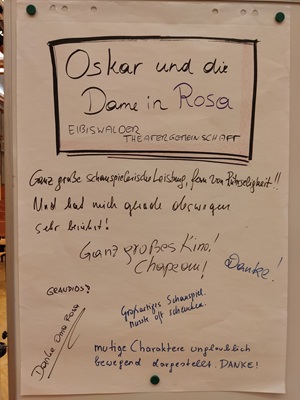 Oskar und die
Dame in Rosa
EIBISWALDER
THEATERGEMEINSCHAFT
Ganz große schauspielerische Leistung, fern von Rührseligkeit!!
Und hat mich gerade deswegen
sehr berührt!
Ganz großes Kino!
Chapeau!
Danke!
GRANDIOS?
Großartiges Schauspiel.
Danke Oma Rosa
mutige Charaktere unglaublich
bewegend dargestellt. DANKE!